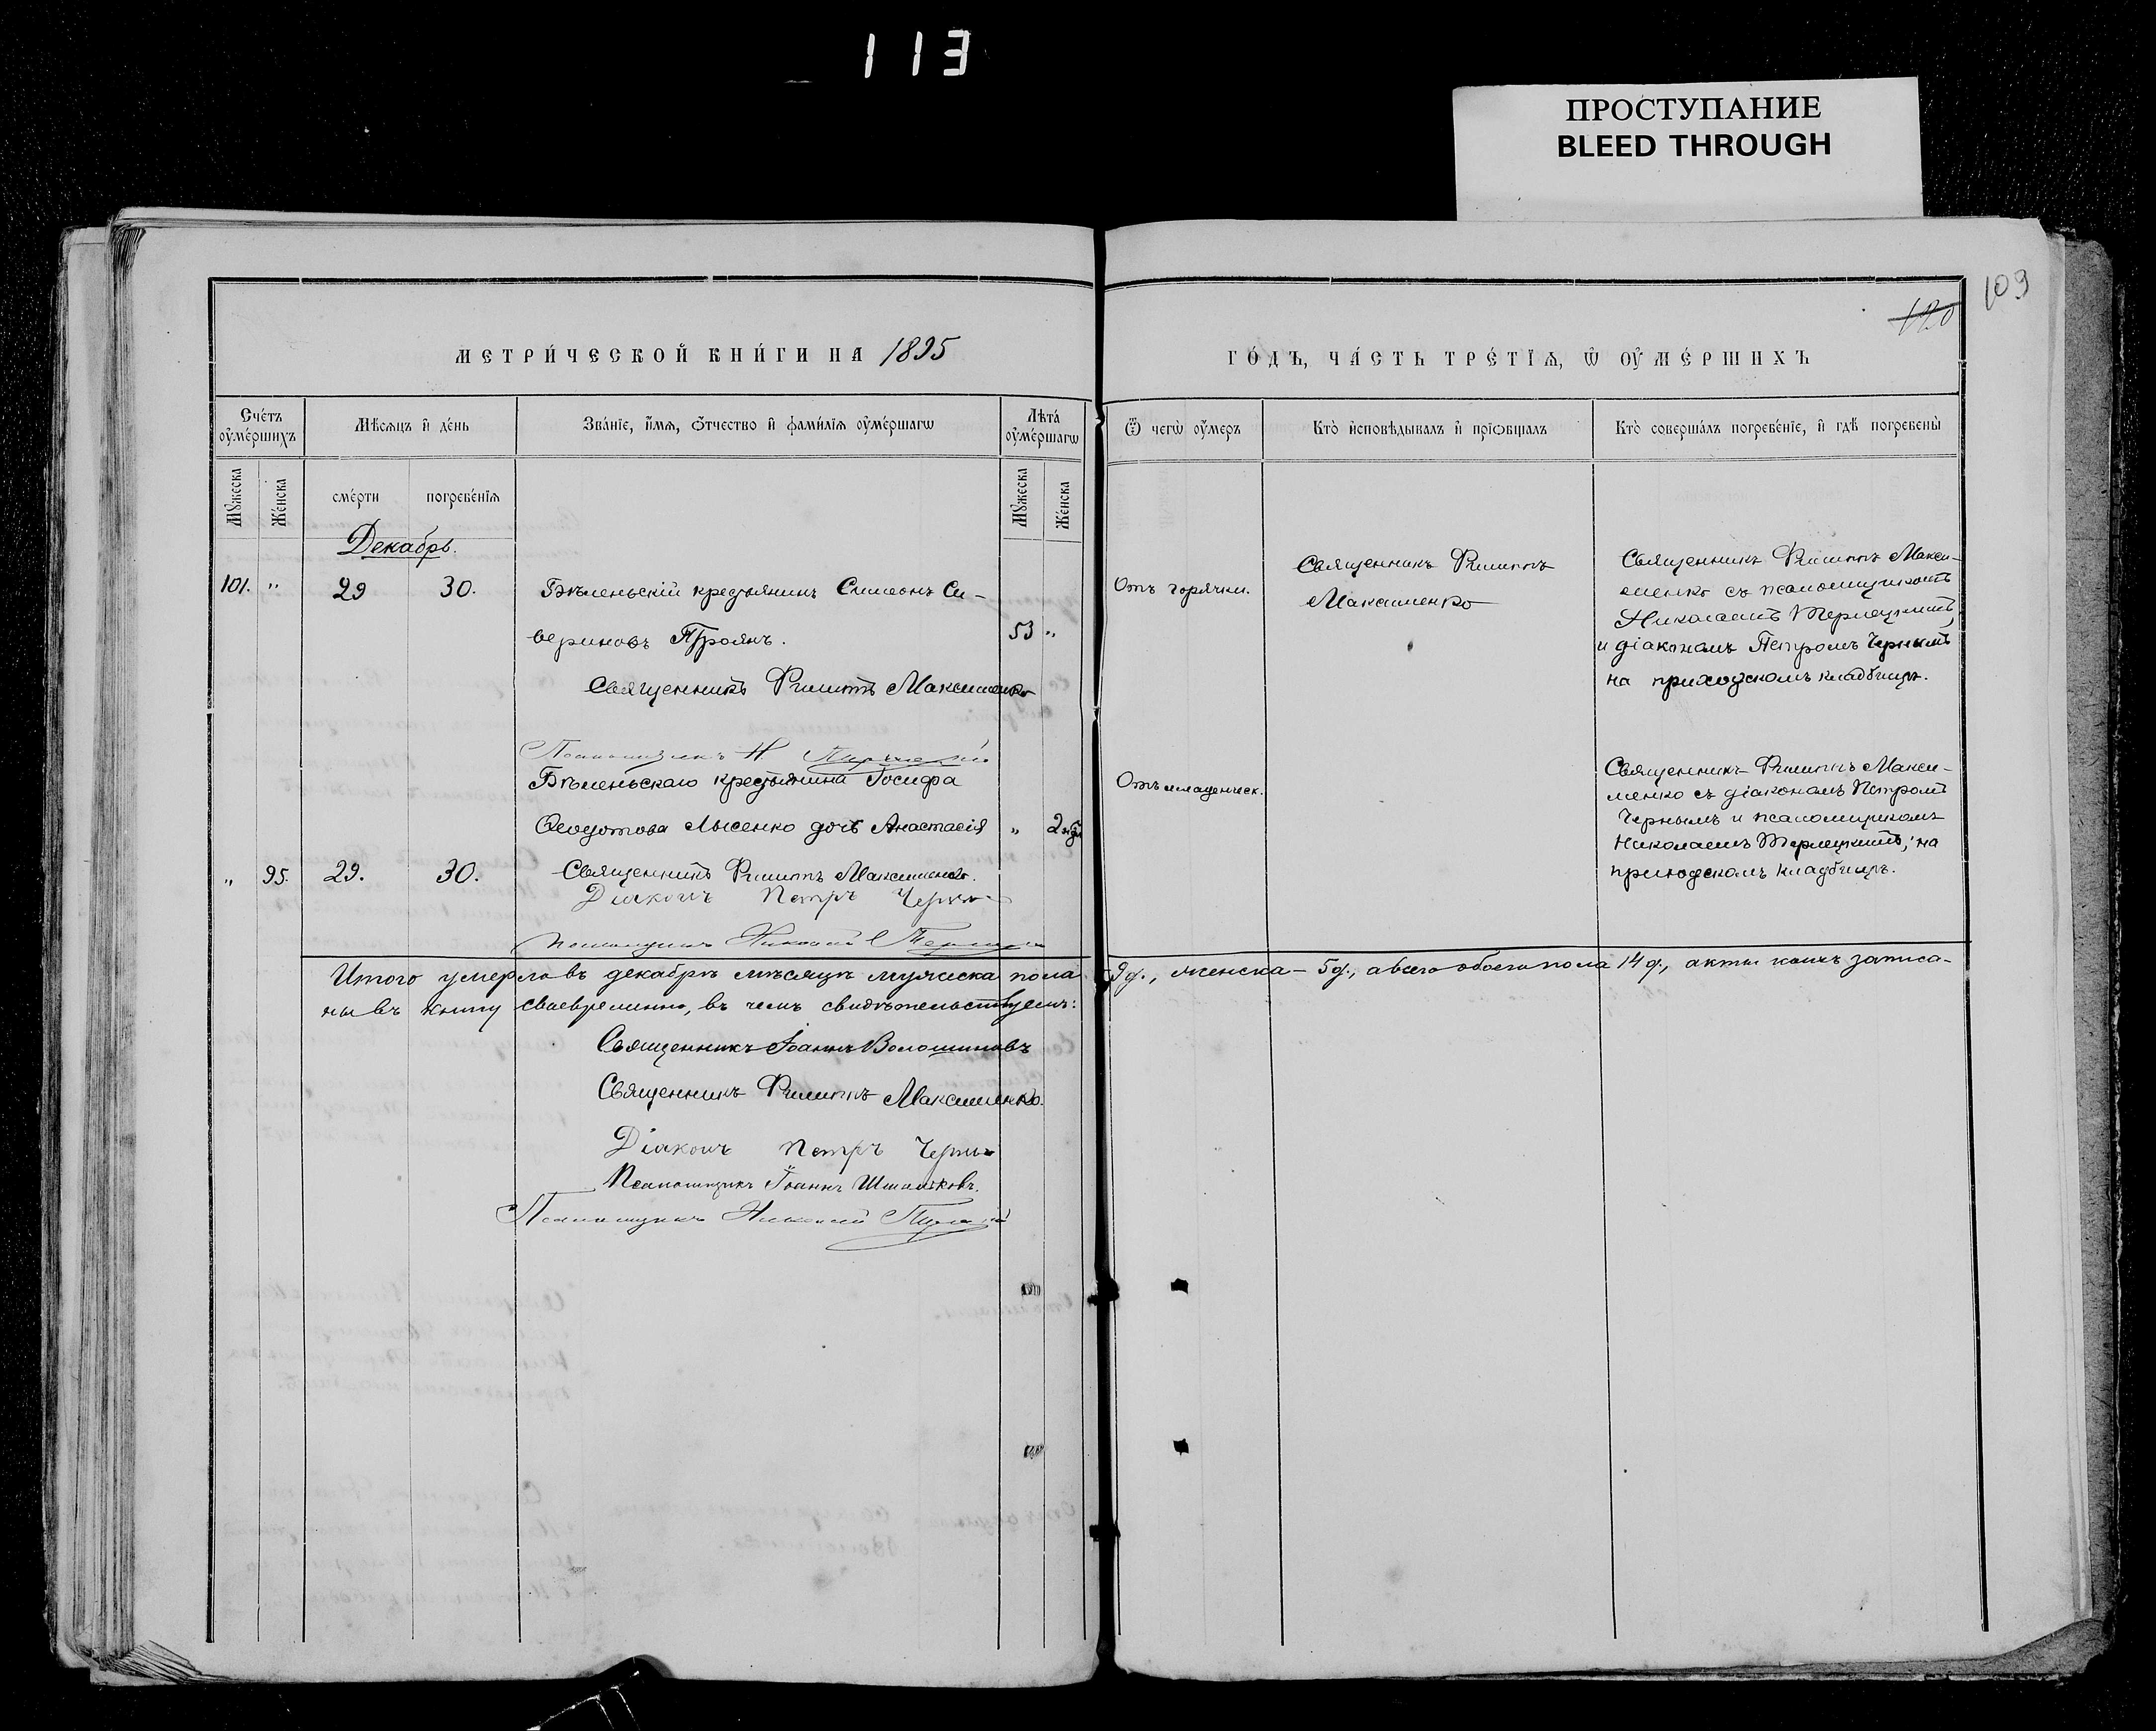 113
ПРОСТУПАНИЕ
BLEED THROUGH
109
120
МЕТРИ́ЧЕСКОЙ КНИ́ГИ НА 1895
ГО́ДЪ, ЧА́СТЬ ТРЕ́ТЇѦ, Ѽ ОУ҆МЕ́РШИХЪ
Сче́тъ оу҆ме́ршихъ
Мѣ́сѧцъ и҆ де́нь
Зва́нїе, и҆́мѧ, ѻ҆́тчество и҆ фами́лїѧ оу҆ме́ршагѡ
Лѣта̀ оу҆ме́ршагѡ
Ѿ чегѡ̀ оу҆́меръ
Кто̀ и҆сповѣ́дывалъ и҆ прїѻбща́лъ
Кто̀ соверша́лъ погребе́нїе, и҆ гдѣ̀ погребены̀
Мꙋ́жеска
Же́нска
сме́рти
погребе́нїѧ
Мꙋ́жеска
Же́нска
Декабрь.
101. " 29 30. Бѣленьскій крестьянинъ Симеонъ Си-
вериновъ Троянъ. 53 "
Священникъ Филиппъ Максименко
Псаломщикъ Н Терлецкій
Отъ горячки.
Священникъ Филиппъ
Максименко
Священникъ Филиппъ Макси-
менко съ псаломщикомъ
Николаемъ Терлецкимъ,
и діакономъ Петромъ Чернымъ
на приходскомъ кладбищѣ.
Бѣленьскаго крестьянина Іосифа
Ѳеодотова Лысенко дочь Анастасія " 2 нд.
" 95. 29. 30. Священникъ Филиппъ Максименко.
Діаконъ Петръ Черный
Псаломщикъ Николай Терлецкій
Отъ младенческ.
Священникъ Филиппъ Макси-
менко съ діакономъ Петромъ
Чернымъ и псаломщикомъ
Николаемъ Терлецкимъ, на
приходскомъ кладбищѣ.
Итого умерло въ декабрѣ мѣсяцѣ мужеска пола 9 д., женска – 5 д., а всего обоего пола 14 д., акты коихъ записа-
ны въ книгу своевременно, въ чемъ свидѣтельствуемъ:
Священникъ Іоаннъ Волошиновъ
Священникъ Филиппъ Максименко.
Діаконъ Петръ Черный
Псаломщикъ Іоаннъ
Псаломщикъ Николай Терлецкій